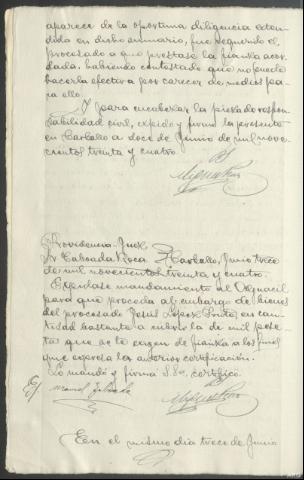 aparece de la oportuna diligencia exten-
dida en dicho sumario, fue requerido el
procesado a que prestase la fianza acor-
dada, habiendo contestado que no puede
hacerla efectiva por carecer de medios pa-
ra ello.
Y para encabezar la pieza de respon-
sabilidad civil, expido y firmo la presente
en Carballo a doce de Junio de mil nove-
cientos treinta y cuatro.
Providencia-Juez
Sr Taboada Roca Carballo, Junio trece
de mil novecientos treinta y cuatro.
Expídase mandamiento al Alguacil
para que proceda al embargo de bienes
del procesado Jesús López Pinto, en can-
tidad bastante a cubrir la de mil pese-
tas que se le exigen de fianza a los fines
que expresa la anterior certificación.
Lo mandó y firma S.Sª, certifico.
E/ Manuel Taboada
En el mismo dia trece de Junio